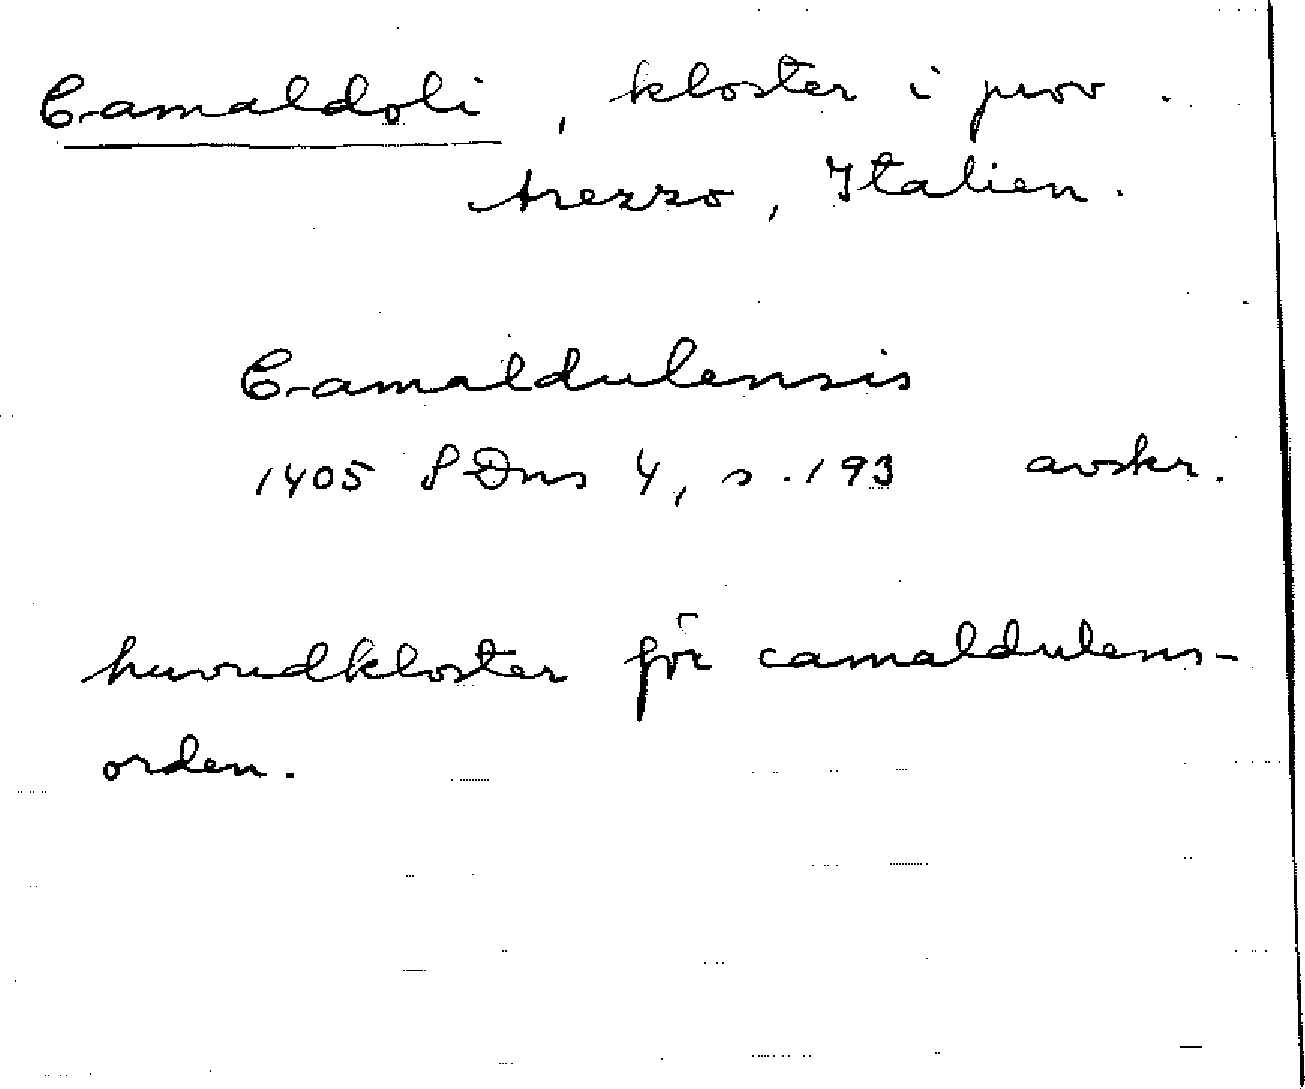 Camaldoli, kloster i prov.
Arezzo, Italien.
Camaldulensis
1405 SDns 4, s. 193 avskr.
huvudkloster för camaldulens-
orden.